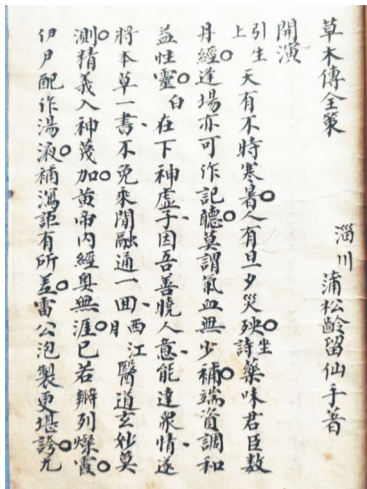 草木傳全策
淄川 蒲松齡留仙手著
開演
引生上 天有不時寒暑人有旦夕災殃 坐詩 藥味君臣數
丹經逢場亦可作記聽莫謂氣血無少補端資調和
益性靈 白 在下神虛子因吾善曉人意能達眾情遂
將本草一書不免乘閒融通一回 西江月 醫道玄妙莫
測精義入神蔑加黃帝內經奧無涯已若辨列燦霞
伊尹配作湯液補瀉詎有所差雷公泡製更堪誇尤